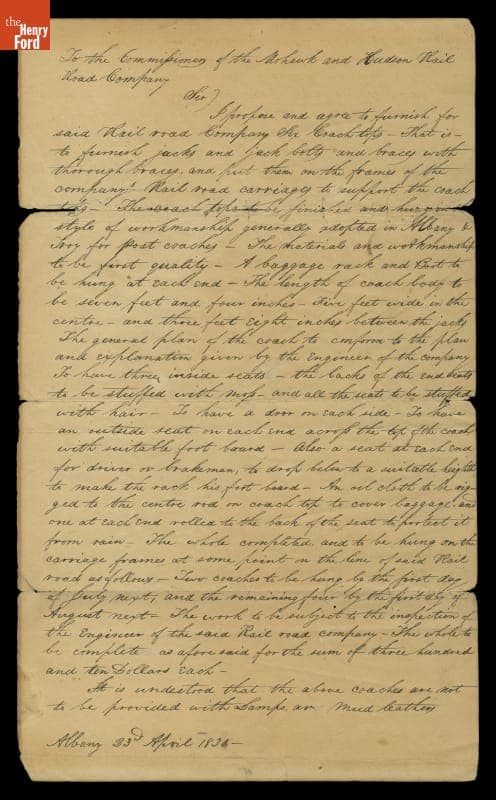 the
Henry
Ford
To the Commissioners of the Mohawk and Hudson Rail
Road Company
Sir
I propose and agree to furnish for
said Rail road Company Six Coach tops – That is –
to furnish jacks and jack bolts and braces with
thorough braces, and put them on the frames of the
company's Rail road carriages to support the coach
tops – The coach tops to be finished and hung in
style of workmanship generally adopted in Albany &
Troy for Post coaches – The materials and workmanship
to be first quality – A baggage rack and Boot to
be hung at each end – The length of coach body to
be seven feet and four inches – Five feet wide in the
centre – and three feet Eight inches between the jacks
The general plan of the coach to conform to the plan
and explanation given by the Engineer of the company
To have three inside seats – the backs of the end seats
to be stuffed with moss – and all the seats to be stuffed
with hair – To have a door on each side – To have
an outside seat on each end across the top of the coach
with suitable foot board – Also a seat at each End
for driver or brakeman, to drop below to a suitable height
to make the rack his foot board – An oil cloth to be rig-
ged to the centre rod on coach top to cover baggage, and
one at each End rolled to the back of the seat to protect it
from rain – The whole completed and to be hung on the
carriage frames at some point on the line of said Rail
road as follows – Two coaches to be hung by the first day
of July next, and the remaining four by the first day of
August next – The work to be subject to the inspection of
the Engineer of the said Rail road company – The whole to
be complete as afore said for the sum of three hundred
and ten Dollars Each –
It is understood that the above coaches are not
to be provided with Lamps, or mud leathers
Albany 23d April 183